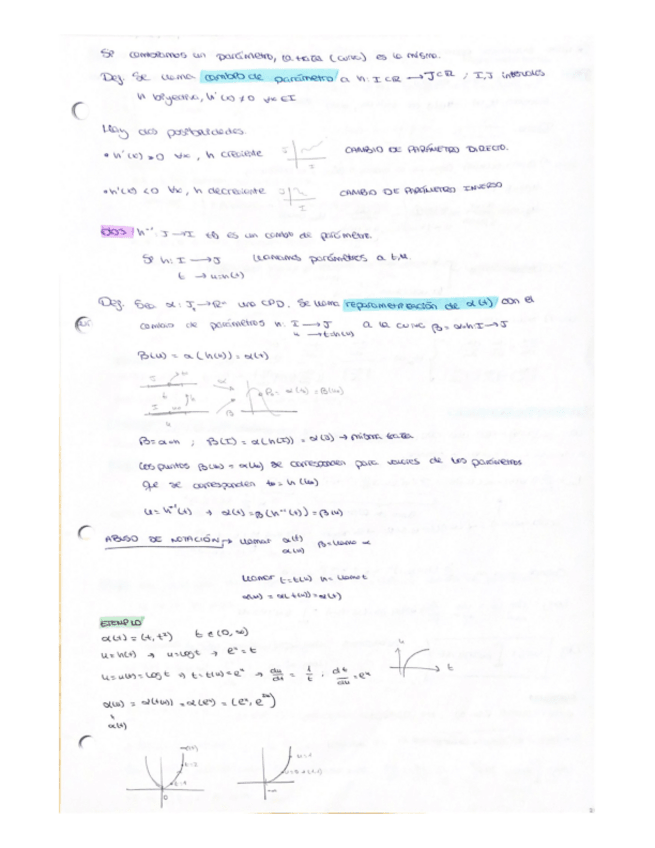 Si cambiamos un parámetro, la traza (curva) es la misma.
Def. Se llama cambio de parámetro a h: I⊂R → J⊂R ; I,J intervalos
h biyectiva, h'(x) ≠ 0 ∀x∈I
Hay dos posibilidades.
• h'(x) > 0 ∀x, h creciente CAMBIO DE PARÁMETRO DIRECTO.
• h'(x) < 0 ∀x, h decreciente CAMBIO DE PARÁMETRO INVERSO
OBS h⁻¹: J → I es un cambio de parámetro.
Si h: I → J llamamos parámetros a t,u.
t → u=h(t)
Def. Sea α: J → Rⁿ una CPD. Se llama reparametrización de α(t) con el
cambio de parámetros h: I → J a la curva β=α∘h: I → J
u → t=h(u)
β(u) = α(h(u)) = α(t)
β=α∘h ; β(I) = α(h(I)) = α(J) → misma traza
Los puntos β(u₀) = α(t₀) se corresponden para valores de los parámetros
que se corresponden t₀ = h(u₀)
u = h⁻¹(t) → α(t) = β(h⁻¹(t)) = β(u)
ABUSO DE NOTACIÓN → llamar α(t) β=llamo α
α(u)
llamar t=t(u) h=llamo t
α(u) = α(t(u)) = α(t)
EJEMPLO
α(t) = (t, t²) t ∈ (0, ∞)
u = h(t) → u = log t → eᵘ = t
u = u(t) = log t → t = t(u) = eᵘ → du/dt = 1/t ; dt/du = eᵘ
α(u) = α(t(u)) = α(eᵘ) = (eᵘ, e²ᵘ)
α(t)